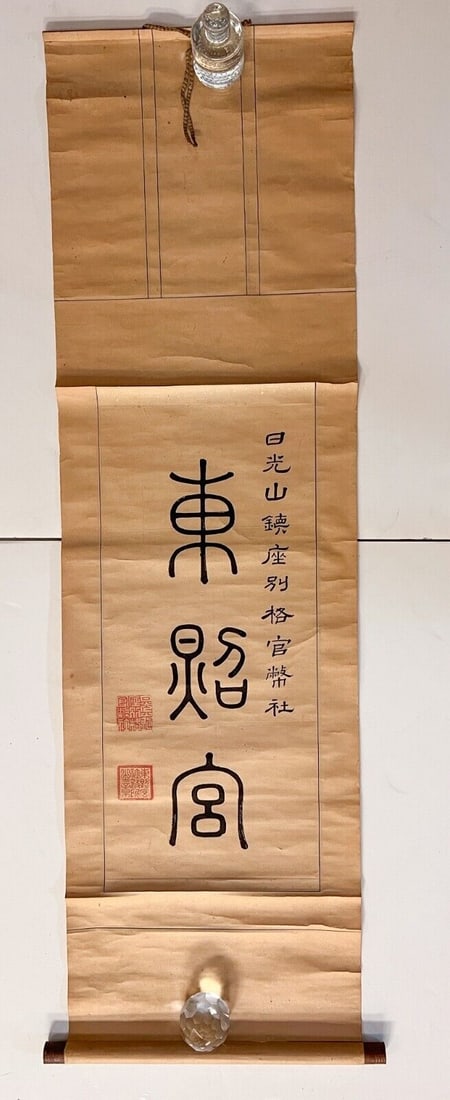 日光山鎮座別格官幣社
東照宮